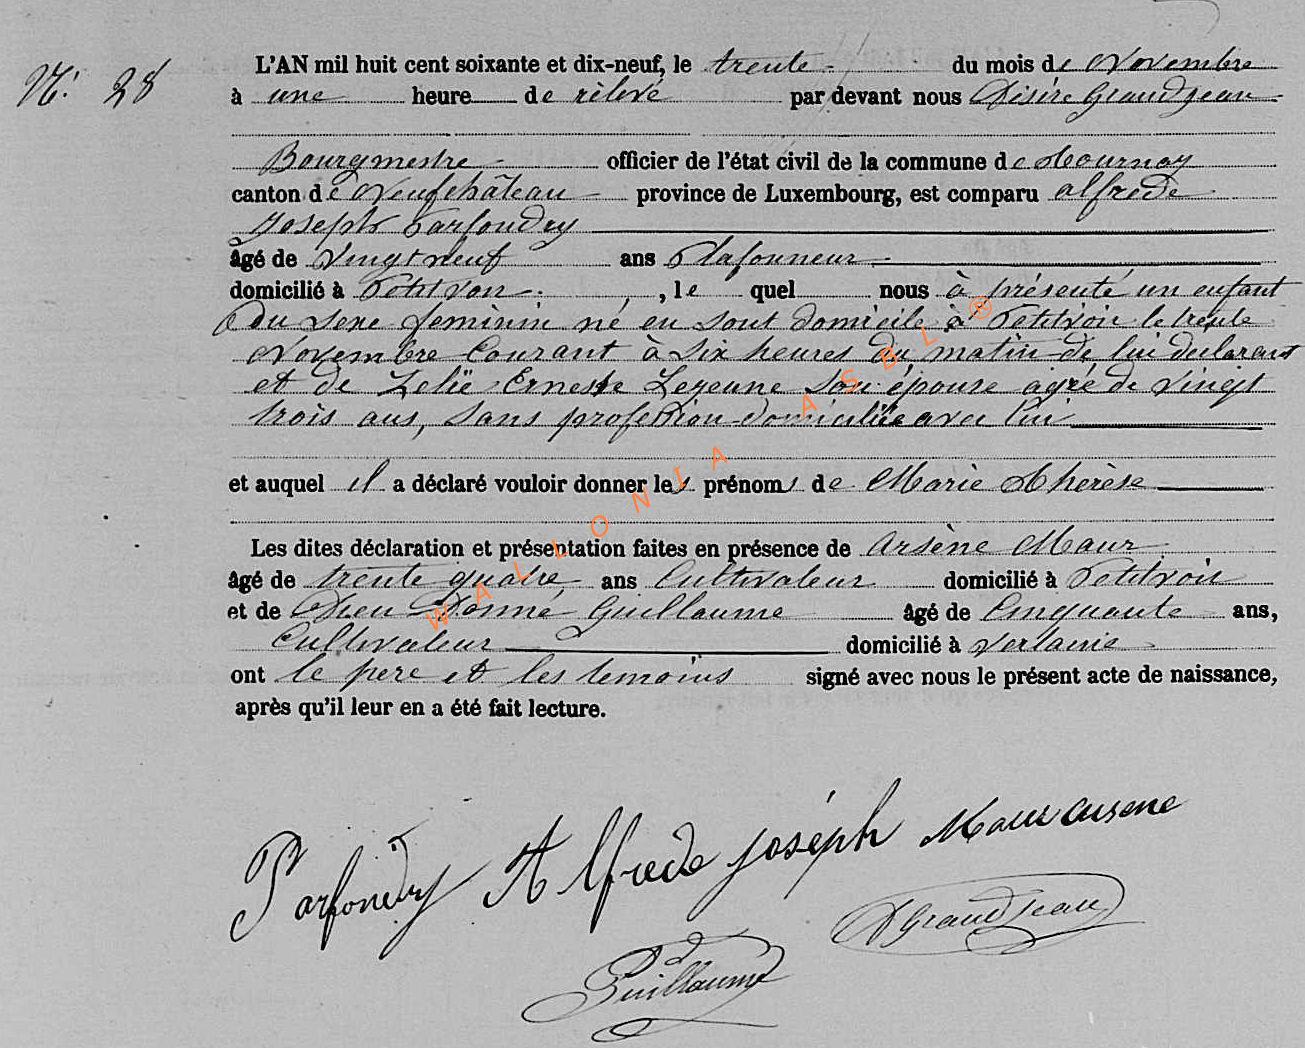 N: 28
L'AN mil huit cent soixante et dix-neuf, le trente du mois de Novembre
à une heure de rélevé par devant nous Désiré Grandjean
Bourgmestre officier de l'état civil de la commune de Tournay
canton de Neufchâteau province de Luxembourg, est comparu alfrede
Joseph Parfondry
âgé de Vingt neuf ans Plafonneur
domicilié à Petitvoir, le quel nous à présenté un enfant
du sexe feminin né en sont domicile à Petitvoir le trente
Novembre Courant à six heures du matin de lui declarant
et de Zelïe Erneste Lejeune son épouse agré de vingt
trois ans, sans profession domiciliée avec lui
et auquel il a déclaré vouloir donner les prénoms de Marie Thérèse
Les dites déclaration et présentation faites en présence de Arsène Maur
âgé de trente quatre ans Cultivateur domicilié à Petitvoir
et de Dieu Donné Guillaume âgé de Cinquante ans,
Cultivateur domicilié à Verlaine
ont le pere et les temoins signé avec nous le présent acte de naissance,
après qu'il leur en a été fait lecture.
Parfondry Alfrede joséph Maur arsene
D Grandjean
D Guillaume
WALLONIA ASBL ®